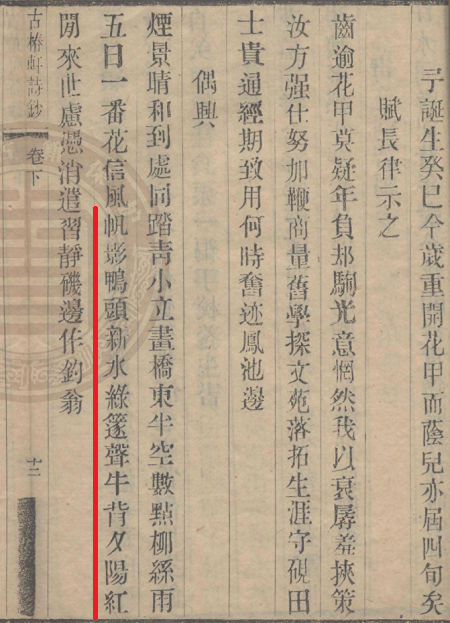 予誕生癸巳今歲重開花甲而蔭兒亦屆四旬矣
賦長律示之
齒逾花甲莫疑年負却駒光意惘然我以衰孱羞挾策
汝方强仕努加鞭商量舊學探文苑落拓生涯守硯田
士貴通經期致用何時奮迹鳳池邊
偶興
煙景晴和到處同踏青小立畫橋東半空數點柳絲雨
五日一番花信風帆影鴨頭新水綠篴聲牛背夕陽紅
閒來世慮憑消遣習靜磯邊作釣翁
古椿軒詩鈔 卷下